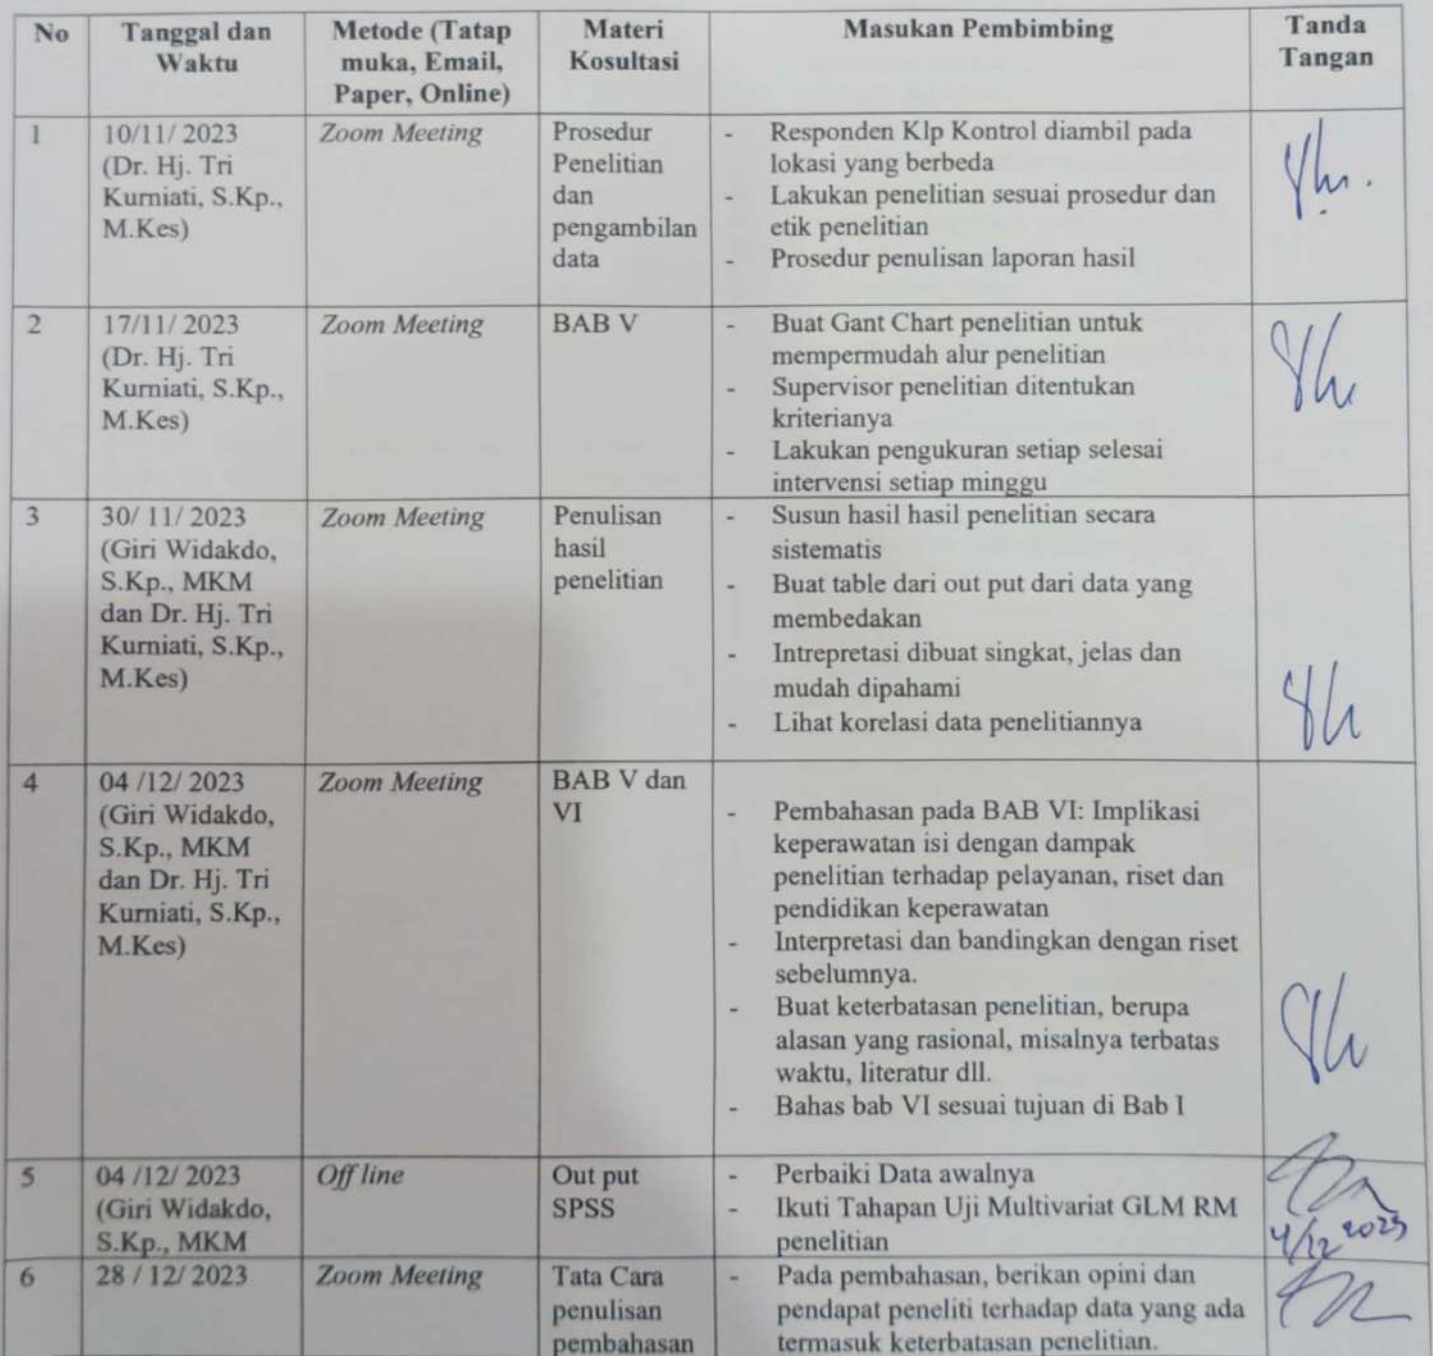 No
Tanggal dan
Waktu
Metode (Tatap
muka, Email,
Paper, Online)
Materi
Kosultasi
Masukan Pembimbing
Tanda
Tangan
1
10/11/ 2023
(Dr. Hj. Tri
Kurniati, S.Kp.,
M.Kes)
Zoom Meeting
Prosedur
Penelitian
dan
pengambilan
data
- Responden Klp Kontrol diambil pada
lokasi yang berbeda
- Lakukan penelitian sesuai prosedur dan
etik penelitian
- Prosedur penulisan laporan hasil
2
17/11/ 2023
(Dr. Hj. Tri
Kurniati, S.Kp.,
M.Kes)
Zoom Meeting
BAB V
- Buat Gant Chart penelitian untuk
mempermudah alur penelitian
- Supervisor penelitian ditentukan
kriterianya
- Lakukan pengukuran setiap selesai
intervensi setiap minggu
3
30/ 11/ 2023
(Giri Widakdo,
S.Kp., MKM
dan Dr. Hj. Tri
Kurniati, S.Kp.,
M.Kes)
Zoom Meeting
Penulisan
hasil
penelitian
- Susun hasil hasil penelitian secara
sistematis
- Buat table dari out put dari data yang
membedakan
- Intrepretasi dibuat singkat, jelas dan
mudah dipahami
- Lihat korelasi data penelitiannya
4
04 /12/ 2023
(Giri Widakdo,
S.Kp., MKM
dan Dr. Hj. Tri
Kurniati, S.Kp.,
M.Kes)
Zoom Meeting
BAB V dan
VI
- Pembahasan pada BAB VI: Implikasi
keperawatan isi dengan dampak
penelitian terhadap pelayanan, riset dan
pendidikan keperawatan
- Interpretasi dan bandingkan dengan riset
sebelumnya.
- Buat keterbatasan penelitian, berupa
alasan yang rasional, misalnya terbatas
waktu, literatur dll.
- Bahas bab VI sesuai tujuan di Bab I
5
04 /12/ 2023
(Giri Widakdo,
S.Kp., MKM
Off line
Out put
SPSS
- Perbaiki Data awalnya
- Ikuti Tahapan Uji Multivariat GLM RM
penelitian
4/12 2023
6
28 / 12/ 2023
Zoom Meeting
Tata Cara
penulisan
pembahasan
- Pada pembahasan, berikan opini dan
pendapat peneliti terhadap data yang ada
termasuk keterbatasan penelitian.